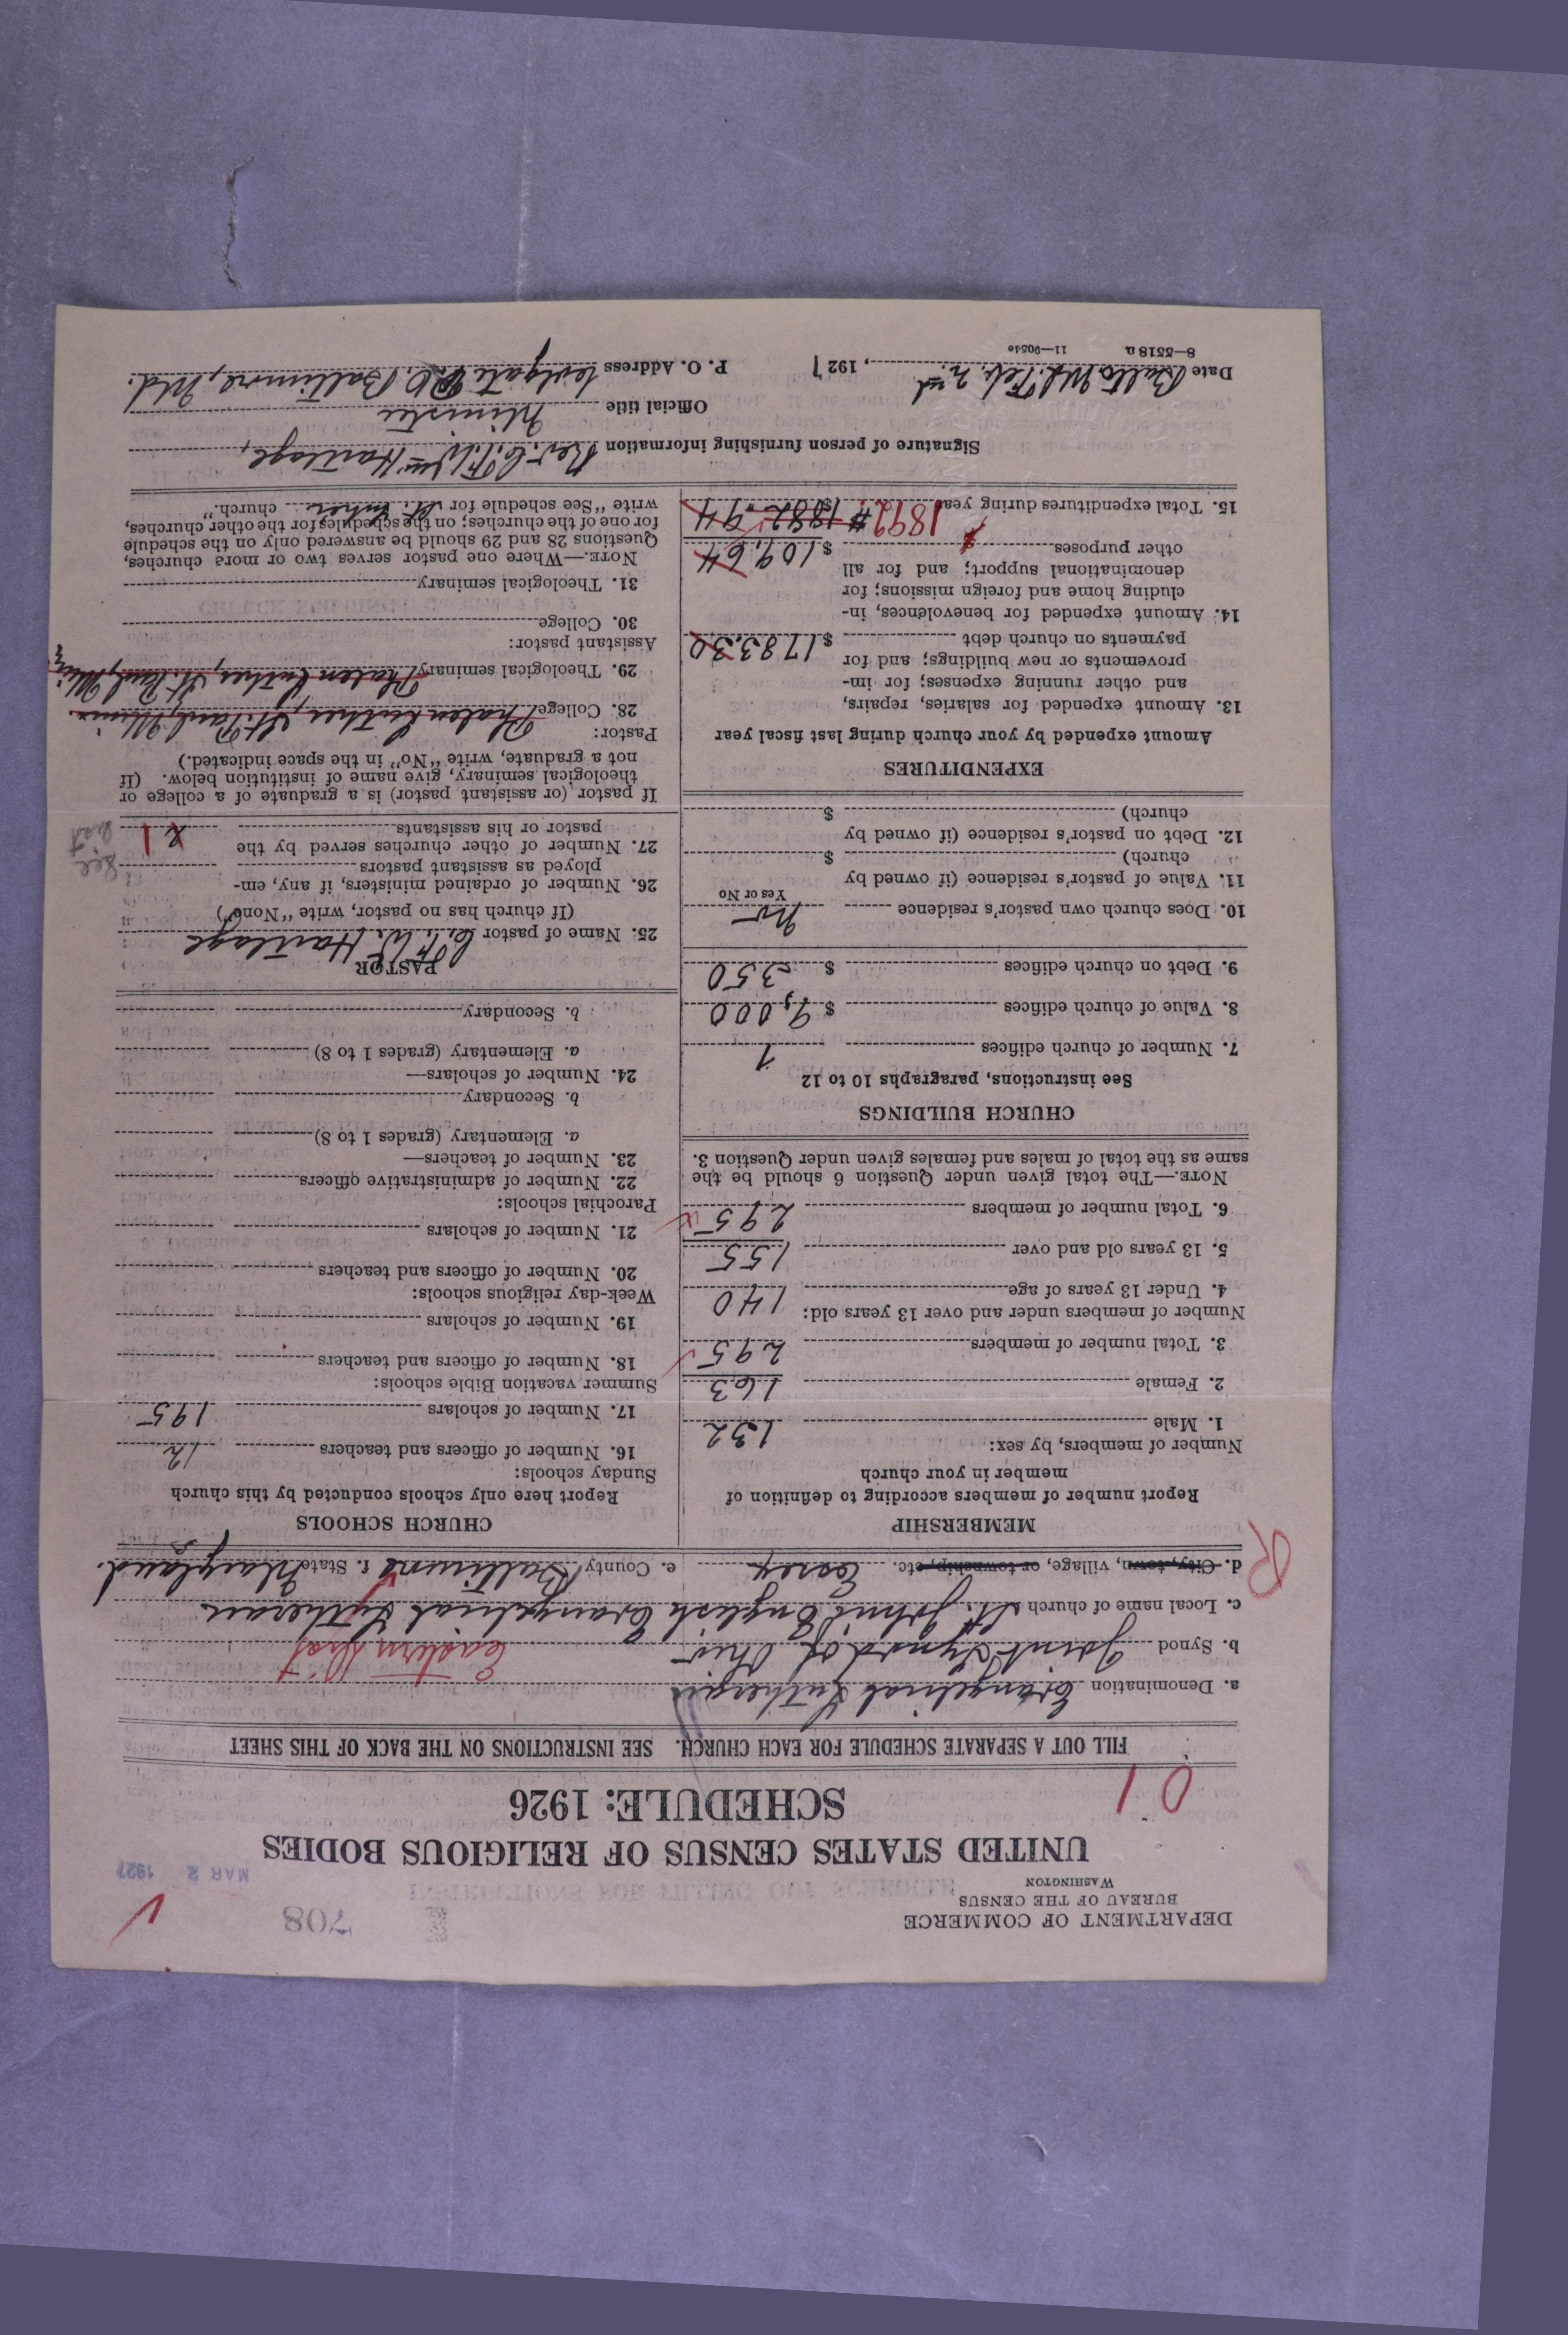 DEPARTMENT OF COMMERCE
BUREAU OF THE CENSUS
WASHINGTON
708
MAR 2 1927
UNITED STATES CENSUS OF RELIGIOUS BODIES
SCHEDULE: 1926
01
FILL OUT A SEPARATE SCHEDULE FOR EACH CHURCH. SEE INSTRUCTIONS ON THE BACK OF THIS SHEET
a. Denomination Evangelical Lutheran
b. Synod Joint Synod of Ohio Eastern Dist
c. Local name of church St. John's English Evangelical Lutheran
R
d. City, town, village, or township, etc. Essex e. County Baltimore f. State Maryland.
MEMBERSHIP
Report number of members according to definition of
member in your church
Number of members, by sex:
1. Male 132
2. Female 163
3. Total number of members 295
Number of members under and over 13 years old:
4. Under 13 years of age 140
5. 13 years old and over 155
6. Total number of members 295
NOTE.—The total given under Question 6 should be the
same as the total of males and females given under Question 3.
CHURCH BUILDINGS
See instructions, paragraphs 10 to 12
7. Number of church edifices 1
8. Value of church edifices $ 9,000
9. Debt on church edifices $ 350
10. Does church own pastor's residence No
Yes or No
11. Value of pastor's residence (if owned by
church) $
12. Debt on pastor's residence (if owned by
church) $
EXPENDITURES
Amount expended by your church during last fiscal year
13. Amount expended for salaries, repairs,
and other running expenses; for im-
provements or new buildings; and for
payments on church debt $ 1783.30
14. Amount expended for benevolences, in-
cluding home and foreign missions; for
denominational support; and for all
other purposes $ 109.64
15. Total expenditures during year 1892 $ 1882.94
CHURCH SCHOOLS
Report here only schools conducted by this church
Sunday schools:
16. Number of officers and teachers 12
17. Number of scholars 195
Summer vacation Bible schools:
18. Number of officers and teachers
19. Number of scholars
Week-day religious schools:
20. Number of officers and teachers
21. Number of scholars
Parochial schools:
22. Number of administrative officers
23. Number of teachers—
a. Elementary (grades 1 to 8)
b. Secondary
24. Number of scholars—
a. Elementary (grades 1 to 8)
b. Secondary
PASTOR
25. Name of pastor C. F. W. Hartlage
(If church has no pastor, write "None")
26. Number of ordained ministers, if any, em-
ployed as assistant pastors
27. Number of other churches served by the
pastor or his assistants 1
If pastor (or assistant pastor) is a graduate of a college or
theological seminary, give name of institution below. (If
not a graduate, write "No" in the space indicated.)
Pastor:
28. College Phalen Luther, St. Paul, Minn.
29. Theological seminary Phalen Luther, St. Paul, Minn
Assistant pastor:
30. College
31. Theological seminary
NOTE.—Where one pastor serves two or more churches,
Questions 28 and 29 should be answered only on the schedule
for one of the churches; on the schedules for the other churches,
write "See schedule for St. church."
Signature of person furnishing information Rev. C. F. Wm Hartlage,
Official title Minister
Date Balto. Md. Feb. 2nd, 1927 P. O. Address Colgate P.O. Baltimore, Md.
8—5518 a 11—9054e